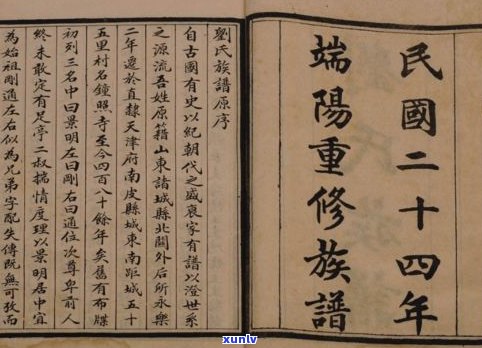 民國二十四年
端陽重修族譜
劉氏族譜原序
自古國有史以紀朝代之盛衰家有譜以澄世系
之源流吾姓原籍山東諸城縣北關外后所永樂
二年遷於直隸天津府南皮縣城東南距城五十
五里村名鐘照寺至今四百八十餘年矣舊有布牒
初列三名中曰景明左曰剛右曰通位次尊卑前人
終未敢定有足亭二叔揣情度理以景明居中宜
為始祖剛通左右似為兄弟字配失傳既無可考而
xunlv